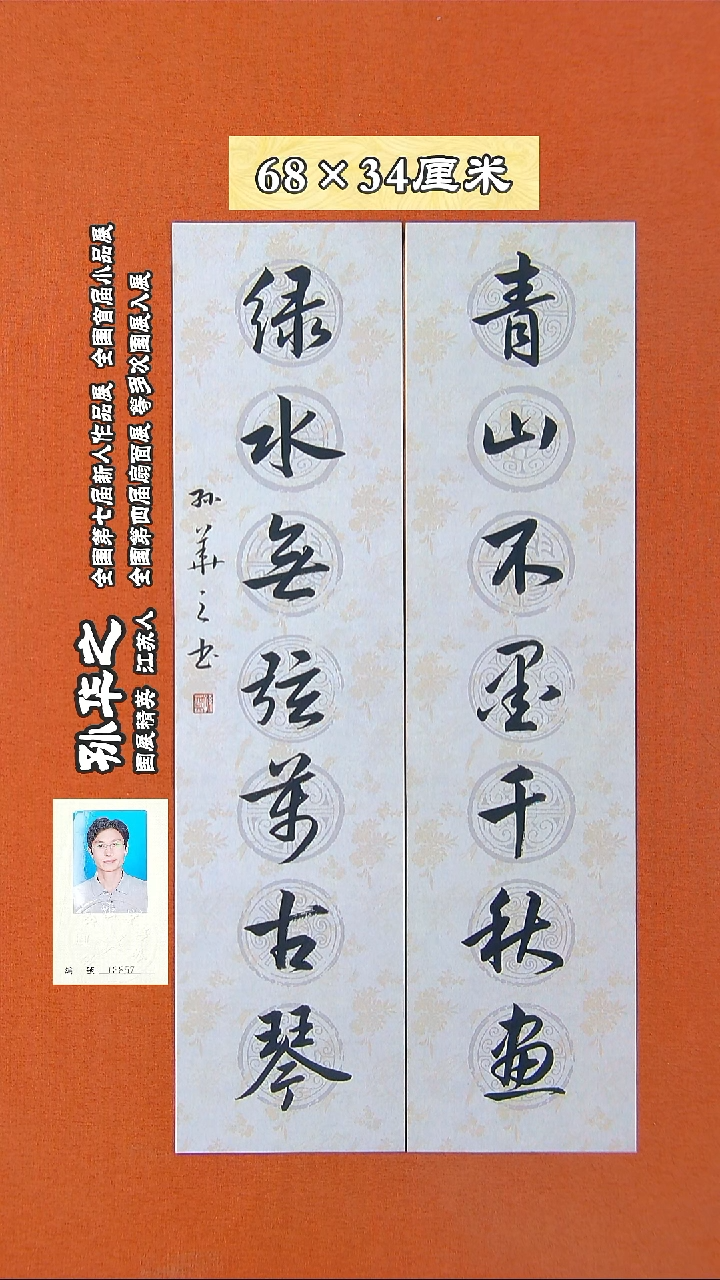 68×34厘米
青山不墨千秋画
绿水無弦萬古琴
孙華之书
孙华之
国展精英 江苏人
全国第七届新人作品展 全国首届小品展
全国第四届扇面展 等多次国展入展
编 号